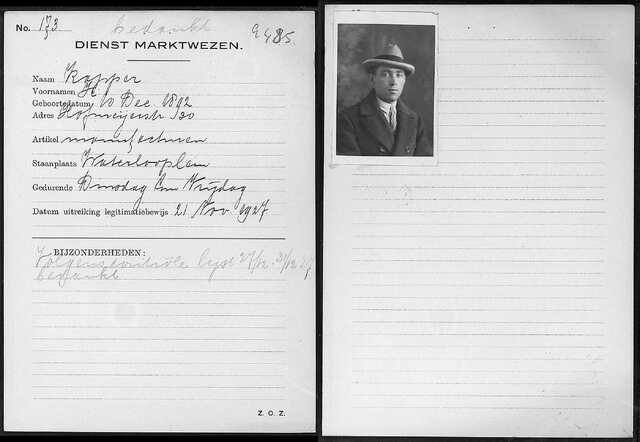 No. 173 bedankt 9485
DIENST MARKTWEZEN.
Naam Kapper
Voornamen H.
Geboortedatum 10 Dec. 1892
Adres Hofmeijerstr 30
Artikel manufacturen
Staanplaats Waterlooplein
Gedurende Dinsdag en Vrijdag
Datum uitreiking legitimatiebewijs 21 Nov 1927
BIJZONDERHEDEN:
Volgens controle lijst 27/12 - 31/12 27
bedankt
Z. O. Z.